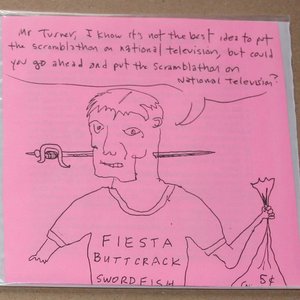 Mr Turner, I know it's not the best idea to put
the scramblathon on national television, but could
you go ahead and put the Scramblathon on
National Television?
FIESTA
BUTTCRACK
SWORDFISH
5¢